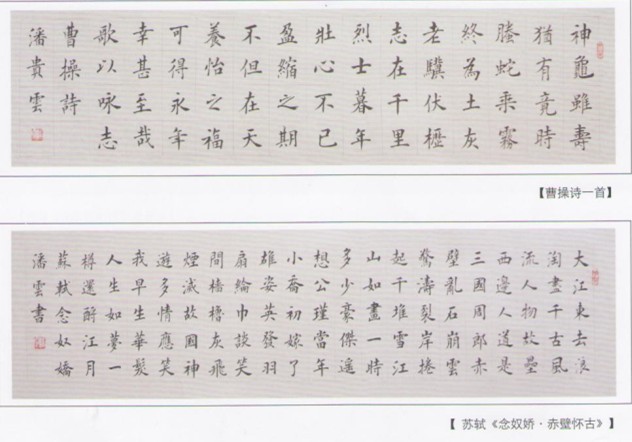 神龜雖壽
猶有竟時
螣蛇乘霧
終為土灰
老驥伏櫪
志在千里
烈士暮年
壯心不已
盈縮之期
不但在天
養怡之福
可得永年
幸甚至哉
歌以咏志
曹操詩
潘貴雲
【曹操诗一首】
大江東去浪
淘盡千古風
流人物故壘
西邊人道是
三國周郎赤
壁亂石崩雲
驚濤裂岸捲
起千堆雪江
山如畫一時
多少豪傑遙
想公瑾當年
小喬初嫁了
雄姿英發羽
扇綸巾談笑
間檣櫓灰飛
煙滅故國神
遊多情應笑
我早生華髮
人生如夢一
樽還酹江月
蘇軾念奴嬌
潘雲書
【 苏轼《念奴娇·赤壁怀古》】